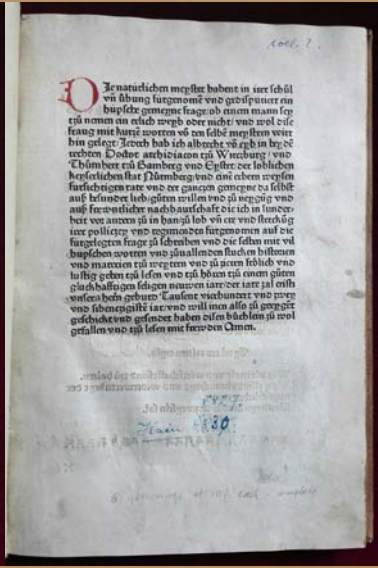 coll. 2.
DJe natürlichen meyster habent in irer schůl
vñ übung fürgenomẽ vnd gedisputiert ein
hupsche gemeyne frage/ ob einem mann sey
tzů nemen ein eelich weyb oder nicht/ vnd wol dise
fraug mit kurtzẽ worten võ den selbẽ meystern wirt
hin gelegt/ Jedoch hab ich albrecht võ eyb in beydẽ
rechten Doctor archidiacon tzů Wirtzburg/ vnd
Thůmherr tzů Bamberg vnd Eystet/ der loblichen
keyserlichen stat Nürmberg/ vnd einẽ erbern weysen
fürsichtigen rate vnd der gantzen gemeyne da selbst
auß besunder lieb/ gůten willen vnd tzů neygũg vnd
auß freuntlicher nachbaurschaft die ich in sunder-
heit vor andern tzů in han/ tzů lob vñ ere vnd sterckũg
irer polliczey vnd regimenden fürgenomen auf die
fürgelegten frage tzů schreiben vnd die selben mit vil
hupschen worten vnd tzůuallenden stucken/ historien
vnd materien tzů weytern vnd tzů zieren/ frölich vnd
lustig getzen tzů lesen vnd tzů hören/ tzů einem gůten
gluckhafftigen seligen neuwen iare/ der iare zal cristi
vnsers herrn geburd Tausent vierhundert vnd zwey
vnd sibentzigistẽ iar/ vnd will inen also tzů geeyget
geschickt vnd gesendet haben disen bůchlein tzů wol
gefallen vnd tzů lesen mit frewden Amen.
Hain 6830